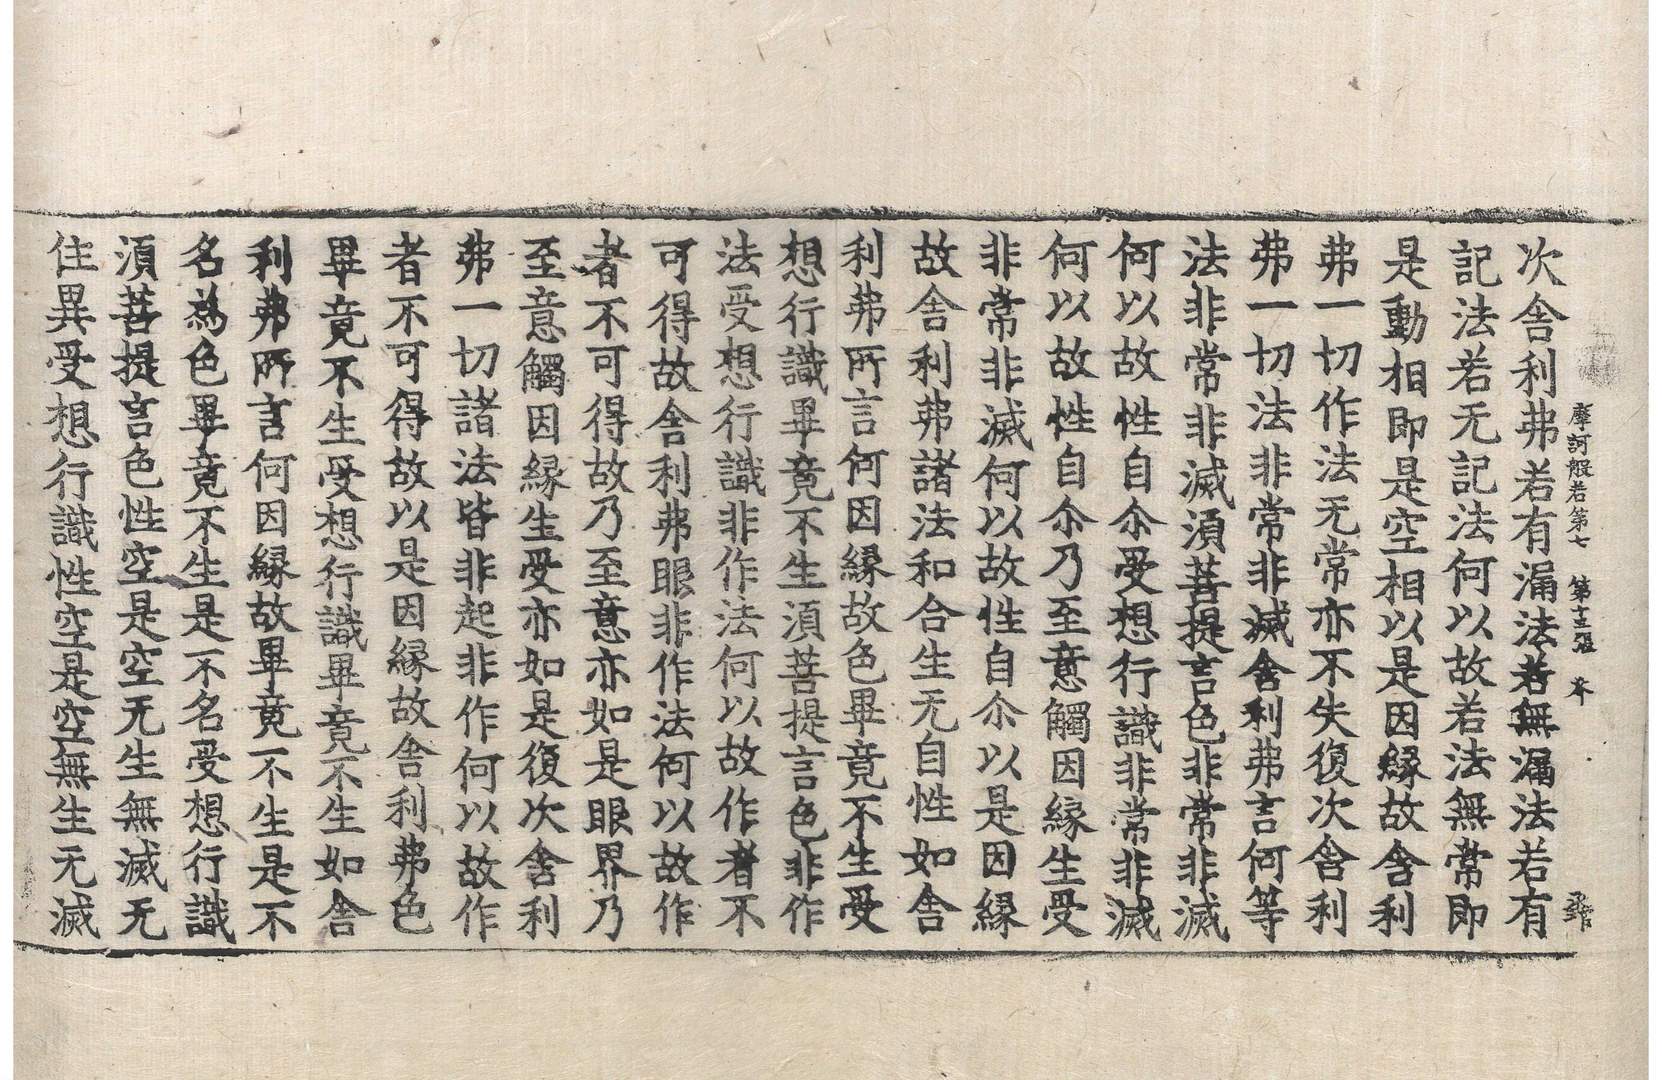 摩訶般若第七　第十五張　芥
次舍利弗若有漏法若無漏法若有
記法若无記法何以故若法無常即
是動相即是空相以是因縁故舍利
弗一切作法无常亦不失復次舍利
弗一切法非常非滅舍利弗言何等
法非常非滅湏菩提言色非常非滅
何以故性自尒受想行識非常非滅
何以故性自尒乃至意觸因縁生受
非常非滅何以故性自尒以是因縁
故舍利弗諸法和合生无自性如舍
利弗所言何因縁故色畢竟不生受
想行識畢竟不生湏菩提言色非作
法受想行識非作法何以故作者不
可得故舍利弗眼非作法何以故作
者不可得故乃至意亦如是眼界乃
至意觸因縁生受亦如是復次舍利
弗一切諸法皆非起非作何以故作
者不可得故以是因縁故舍利弗色
畢竟不生受想行識畢竟不生如舍
利弗所言何因縁故畢竟不生是不
名為色畢竟不生是不名受想行識
湏菩提言色性空是空无生無滅无
住異受想行識性空是空無生无滅